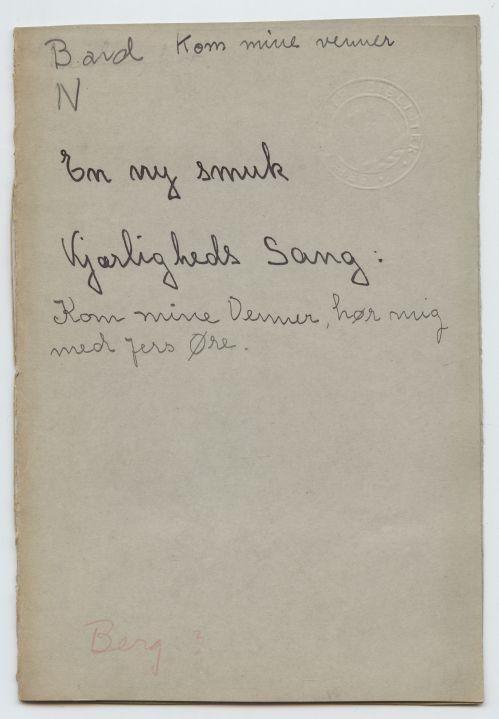 B. avd Kom mine venner
N
En ny smuk
Kjærligheds Sang:
Kom mine Venner, hør mig
med Jers Øre.
Berg ?